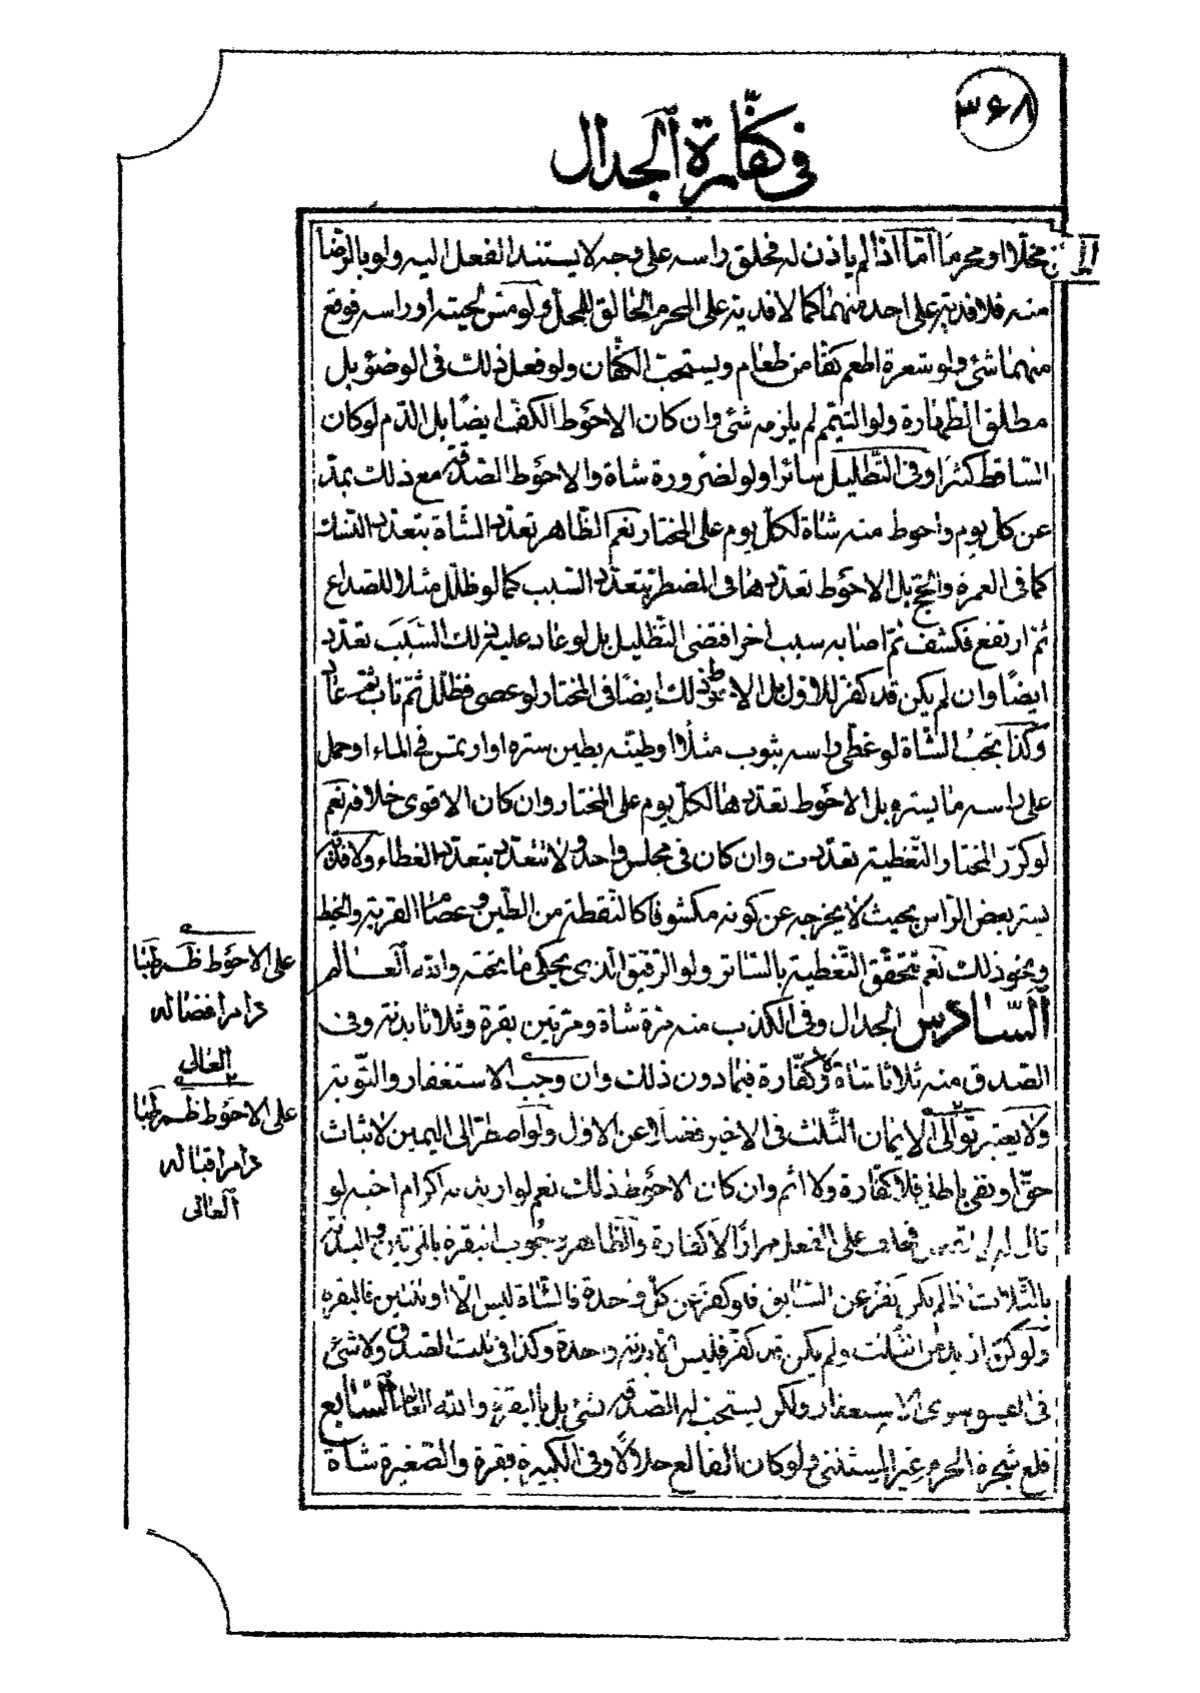 ٣۶٨
فى كفّارة الجدال
محلّا او محرما امّا اذا لم ياذن له فحلق راسه على وجه لا يستند الفعل اليه ولو بالرّضا
منه فلا فدية على احد منهما كما لا فدية على المحرم الحالق للمحلّ ولو مسّ لحيته او راسه فوقع
منهما شئ ولو شعرة اطعم كفّا من طعام ويستحبّ الكفّان ولو فعل ذلك فى الوضوء بل
مطلق الطّهارة ولو التيمّم لم يلزمه شئ وان كان الاحوط الكفّ ايضا بل الدّم لو كان
السّاقط كثيرا وفى التّظليل سائرا ولو لضرورة شاة والاحوط الصّدقة مع ذلك بمدّ
عن كلّ يوم واحوط منه شاة لكلّ يوم على المختار نعم الظّاهر تعدّد الشّاة بتعدّد النّسك
كما فى العمرة والحجّ بل الاحوط تعدّدها فى المضطر بتعدّد السّبب كما لو ظلّل مثلا للصداع
ثمّ ارتفع فكشف ثمّ اصابه سبب اخر اقتضى التّظليل بل لو عاد عليه ذلك السّبب تعدّد
ايضا وان لم يكن قد كفّر للاوّل بل الاحوط ذلك ايضا فى المختار لو عصى فظلّل ثمّ تاب ثمّ عاد
وكذا يجب الشّاة لو غطّى راسه بثوب مثلا او طيّنه بطين ستره او ارتمس فى الماء او حمل
على راسه ما يستره بل الاحوط تعدّدها لكلّ يوم على المختار وان كان الاقوى خلافه نعم
لو كرّر المختار التّغطية تعدّدت وان كان فى مجلس واحد ولا تتعدّد بتعدّد الغطاء ولا فدية
بستر بعض الرّاس بحيث لا يخرجه عن كونه مكشوفا كالنّقطة من الطّين وعصام القربة والخيط
ونحو ذلك نعم تتحقّق التّغطية بالسّاتر ولو الرّقيق الّذى يحكى ما تحته والله العالم
السّادس الجدال وفى الكذب منه مرّة شاة ومرّتين بقرة وثلاثا بدنة وفى
الصّدق منه ثلاثا شاة ولا كفّارة فيما دون ذلك وان وجب الاستغفار والتّوبة
ولا يعتبر توالى الايمان الثّلث فى الاخير فضلا عن الاوّل ولو اضطرّ الى اليمين لاثبات
حقّ او نفى باطل فلا كفّارة ولا اثم وان كان الاحوط ذلك نعم لو اريد به اكرام اخيه لو
قال له فحلف على الفعل مرارا لا كفّارة والظّاهر وجوب البقرة بالمرّتين والبدنة
بالثّلاث اذا لم يكن كفّر عن السّابق فلو كفّر عن كلّ واحدة فالشّاة ليس الّا او ثنتين فالبقرة
ولو كان ازيد من الثّلث ولم يكن قد كفّر فليس الّا بدنة واحدة وكذا فى ثلث الصّدق ولا شئ
فى الفسوق سوى الاستغفار ولكن يستحبّ له الصّدقة بشئ بل بالبقرة والله العالم السّابع
قلع شجرة الحرم غير المستثنى ولو كان القالع حلالا وفى الكبيرة بقرة والصّغيرة شاة
على الاحوط ظم طبا
دام افضاله
العالى
٢
على الاحوط ظم طبا
دام اقباله
العالى